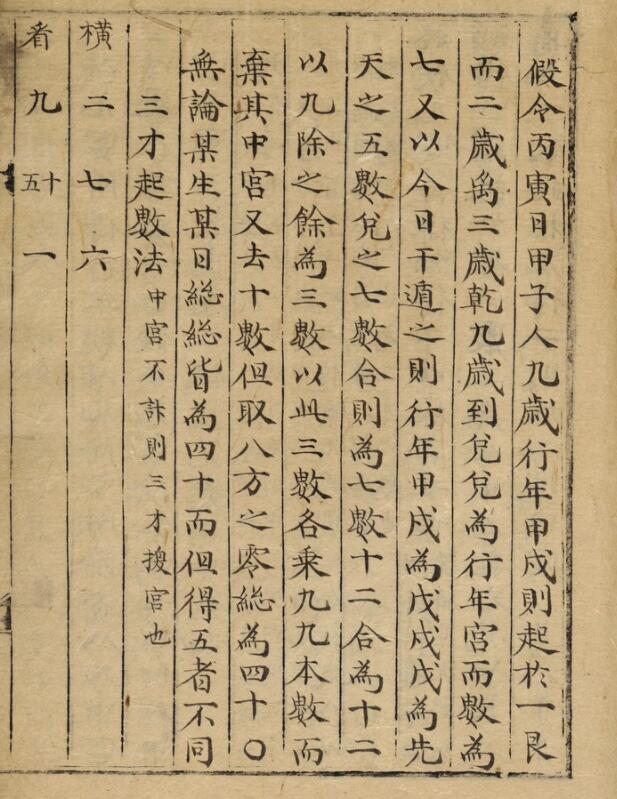 假令丙寅日甲子人九歲行年甲戌則起於一艮
而二歲禹三歲乾九歲到兌兌為行年宮而數為
七又以今日干遁之則行年甲戌為戊戌戊為先
天之五數兌之七數合則為七數十二合為十二
以九除之餘為三數以此三數各乗九九本數而
棄其中宮又去十數但取八方之零総為四十〇
無論某生某日総総皆為四十而但得五者不同
三才起數法 中宮不計則三才搜宮也
橫二七六
看九五十一